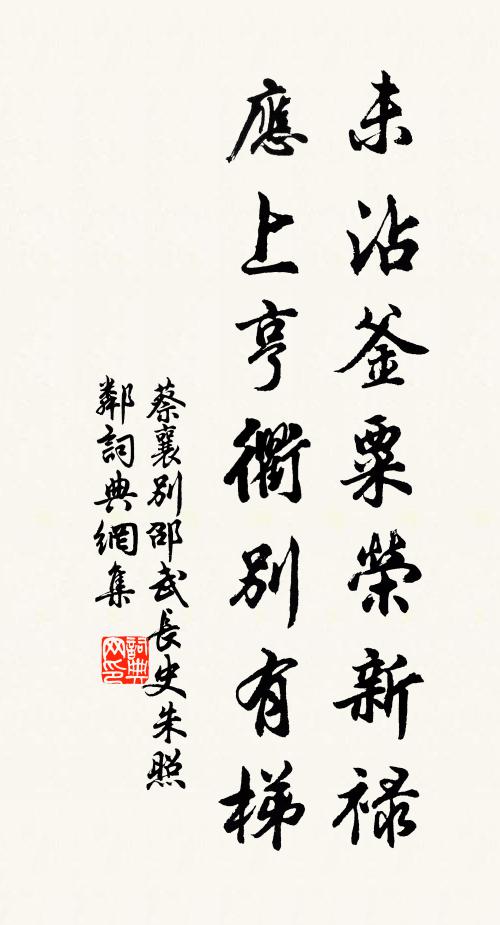 未沾釜粟榮新祿
應上亨衢別有梯
蔡襄別邵武長史朱照
鄰詞典網集
詞典網印